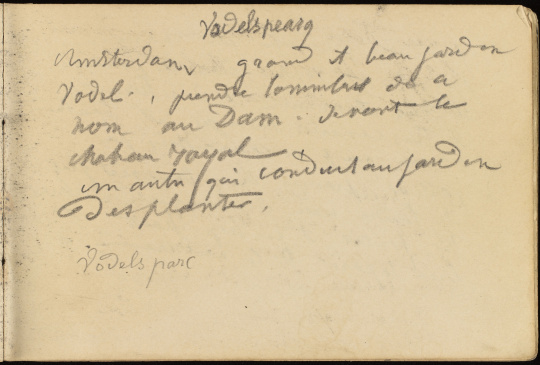 Vodelspearq
Amsterdam, grand et beau jardin
Vodel. prendre l'omnibus de a
nom au Dam. devant le
chateau royal
un autre qui conduit au jardin
des plantes.
Vodels parc